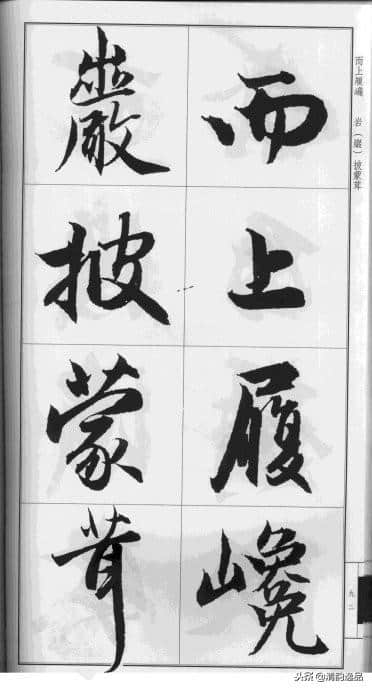 而上履巉 岩（巖）披蒙茸
而上履巉
巖披蒙茸
九二
头条@清韵逸品